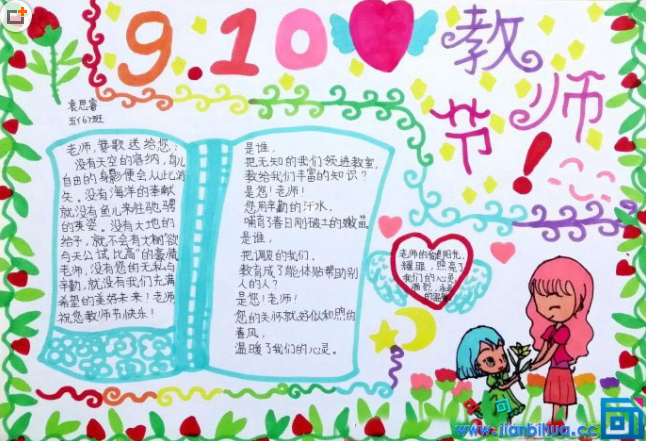 9.10
教师
节!
袁思睿
五(6)班
老师,赞歌送给您:
没有天空的容纳,鸟儿
自由的身影便会从此消
失。没有海洋的奉献
就没有鱼儿来驻驰骋
的英姿。没有大地的
给予,就不会有大树"欲
与天公试比高"的豪情
老师,没有您的无私与
辛勤,就没有我们充满
希望的美好未来!老师
祝您教师节快乐!
是谁,
把无知的我们领进教室,
教给我们丰富的知识?
是您!老师!
您用辛勤的汗水,
哺育了春日刚破土的嫩苗
是谁,
把调皮的我们,
教育成了能体贴帮助别
人的人?
是您!老师!
您的关怀就好似和煦的
春风,
温暖了我们的心灵。
老师的爱是阳光,
耀眼,照亮了
我们的心灵
www.jianbihua.cc